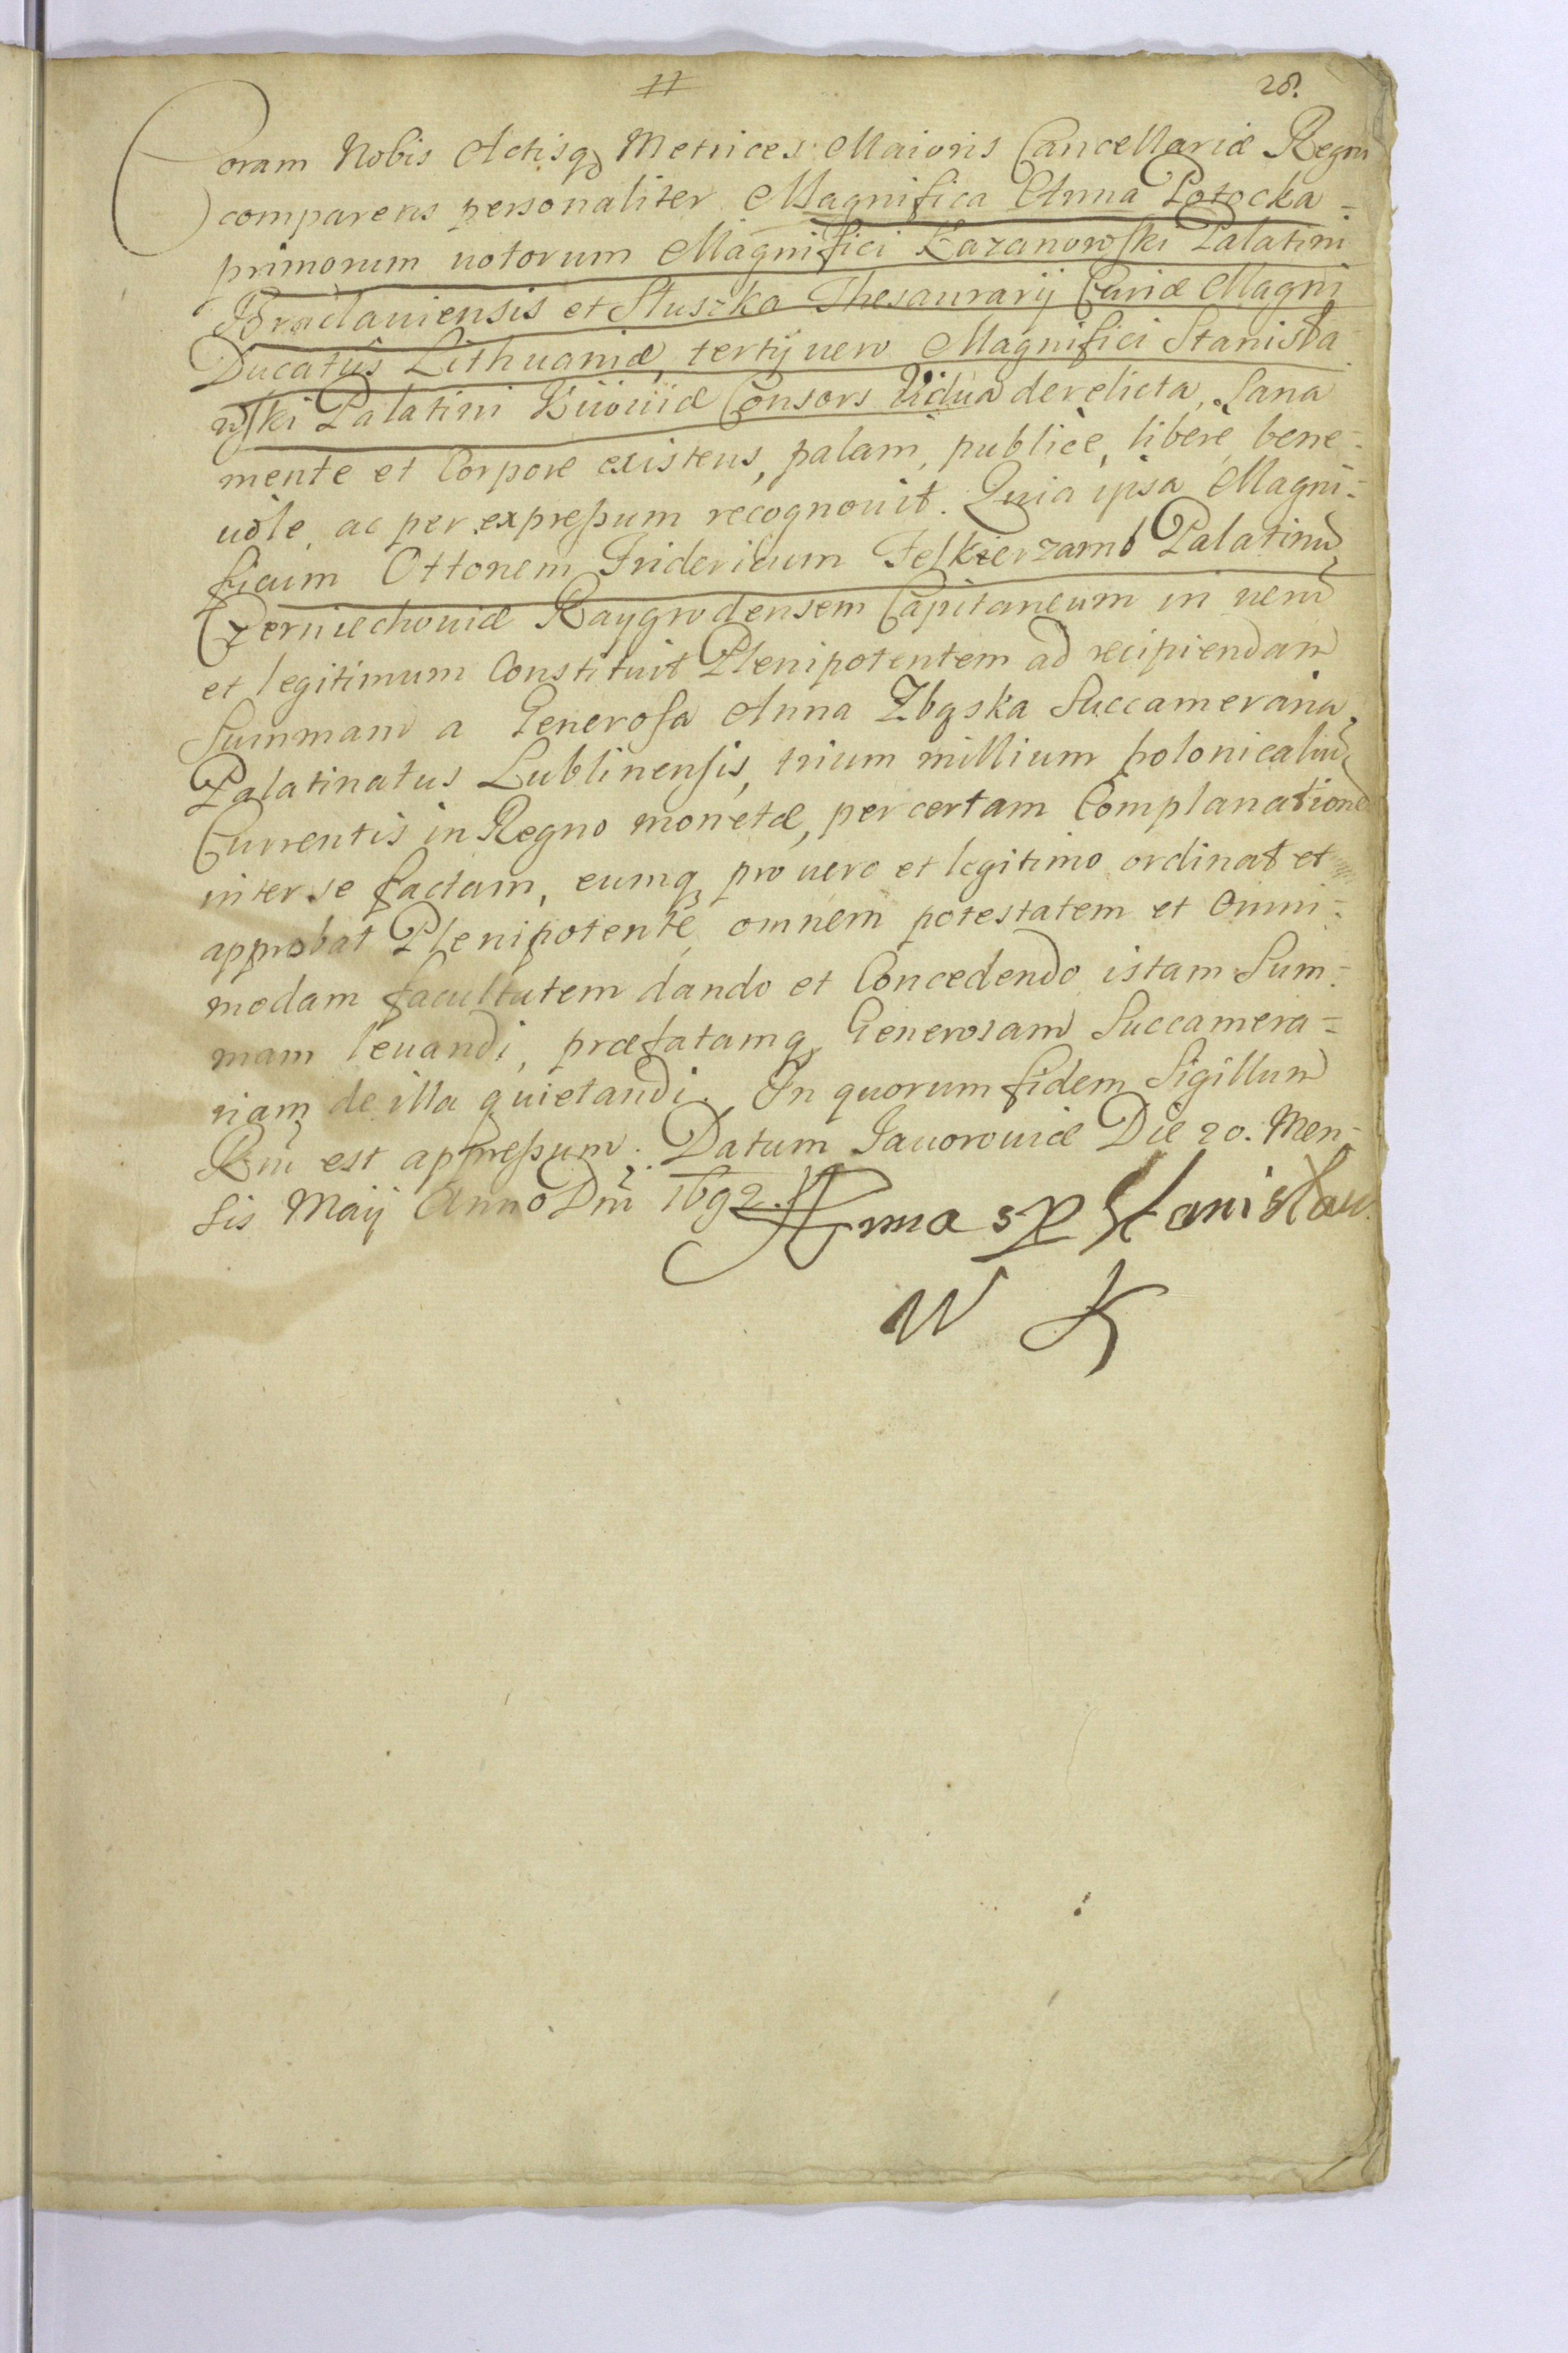 28.
Coram Nobis Actisq Metrices Maioris Cancellariæ Regni
comparens personaliter Magnifica Anna Potocka =
primorum uotorum Magnifici Kazanowski Palatini
Braclauiensis et Słuszka Thesaurarij Curiæ Magni
Ducatus Lithuaniæ, tertij uero Magnifici Stanisła
wski Palatini Kiiouiæ Consors Uidua derelicta, Sana
mente et Corpore existens, palam, publicè, liberè, bene =
uole, ac per expreßum recognouit. Quia ipsa Magni =
ficum Ottonem Fridericum Felkierzamb Palatinu
Czerniechouiæ Raygrodensem Capitaneum in ueru
et legitimum Constituit Plenipotentem ad recipiendam
Summam a Generosa Anna Zbąska Succameraria
Palatinatus Lublinensis, trium millium polonicaliu
Currentis in Regno monetæ, per certam Complanatione
inter se factam, eumq pro uero et legitimo ordinat et
approbat Plenipotente, omnem potestatem et Omni =
modam facultatem dando et Concedendo istam Sum =
mam leuandi, præfatamq Generosam Succamera =
riam de illa quietandi. In quorum fidem Sigillum
Rni est appreßum. Datum Iauorouiæ Die 20. Men =
sis Maij Anno Dni 1692.
Anna s P Stanisław
W K